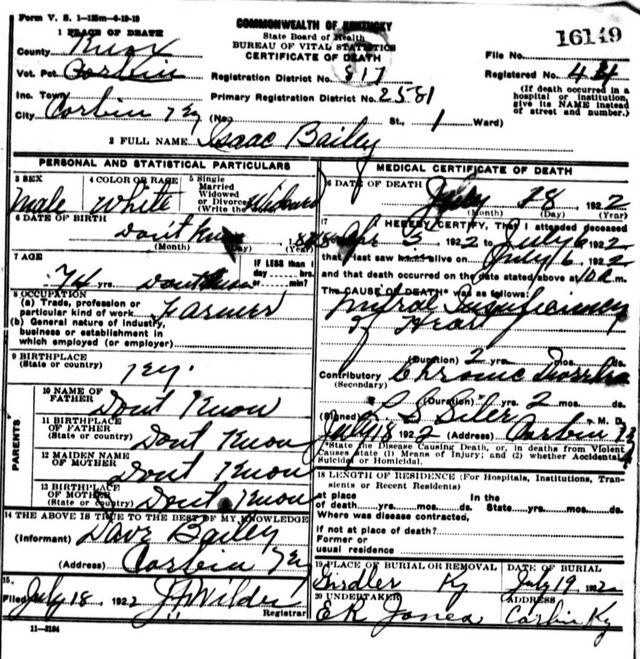 Form V. S. 1-125m-6-19-19
COMMONWEALTH OF KENTUCKY
State Board of Health
BUREAU OF VITAL STATISTICS
CERTIFICATE OF DEATH
16149
1 PLACE OF DEATH
County Knox
Vot. Pct. Corbin
Inc. Town
City Corbin Ky (No. St., 1 Ward)
Registration District No. 817
Primary Registration District No. 2581
File No.
Registered No. 44
(If death occurred in a hospital or institution, give its NAME instead of street and number.)
2 FULL NAME Isaac Bailey
PERSONAL AND STATISTICAL PARTICULARS
3 SEX
male
4 COLOR OR RACE
White
5 Single
Married
Widowed
or Divorced
(Write the word)
Widowed
6 DATE OF BIRTH
Dont Know
(Month) (Day) (Year)
7 AGE
74 yrs. Dont Know
IF LESS than 1
day hrs.
or min?
8 OCCUPATION
(a) Trade, profession or
particular kind of work Farmer
(b) General nature of industry,
business or establishment in
which employed (or employer)
9 BIRTHPLACE
(State or country)
Ky.
PARENTS
10 NAME OF
FATHER
Dont Know
11 BIRTHPLACE
OF FATHER
(State or country)
Dont Know
12 MAIDEN NAME
OF MOTHER
Dont Know
13 BIRTHPLACE
OF MOTHER
(State or country)
Dont Know
14 THE ABOVE IS TRUE TO THE BEST OF MY KNOWLEDGE
(Informant) Dave Bailey
(Address) Corbin Ky
15
Filed July 18 1922 Registrar
11-3184
MEDICAL CERTIFICATE OF DEATH
16 DATE OF DEATH July 18 1922
(Month) (Day) (Year)
17
I HEREBY CERTIFY, That I attended deceased
Apr 3, 1922 to July 6 1922
that I last saw alive on July 6 1922
and that death occurred on the date stated above at 10 a m.
The CAUSE OF DEATH* was as follows:
Mitral Insufficiency
of Heart
(Duration) 2 yrs. mos. ds.
Contributory Chronic
(Secondary)
(Duration) yrs. 2 mos. ds.
(Signed) L S Siler M. D.
July 18 1922 (Address) Corbin Ky
*State the Disease Causing Death, or, in deaths from Violent
Causes state (1) Means of Injury; and (2) whether Accidental,
Suicidal or Homicidal.
18 LENGTH OF RESIDENCE (For Hospitals, Institutions, Transients or Recent Residents)
At place In the
of death yrs. mos. ds. State yrs. mos. ds.
Where was disease contracted,
if not at place of death?
Former or
usual residence
19 PLACE OF BURIAL OR REMOVAL
Girdler Ky
DATE OF BURIAL
July 19 1922
20 UNDERTAKER
E R Jones
ADDRESS
Corbin Ky